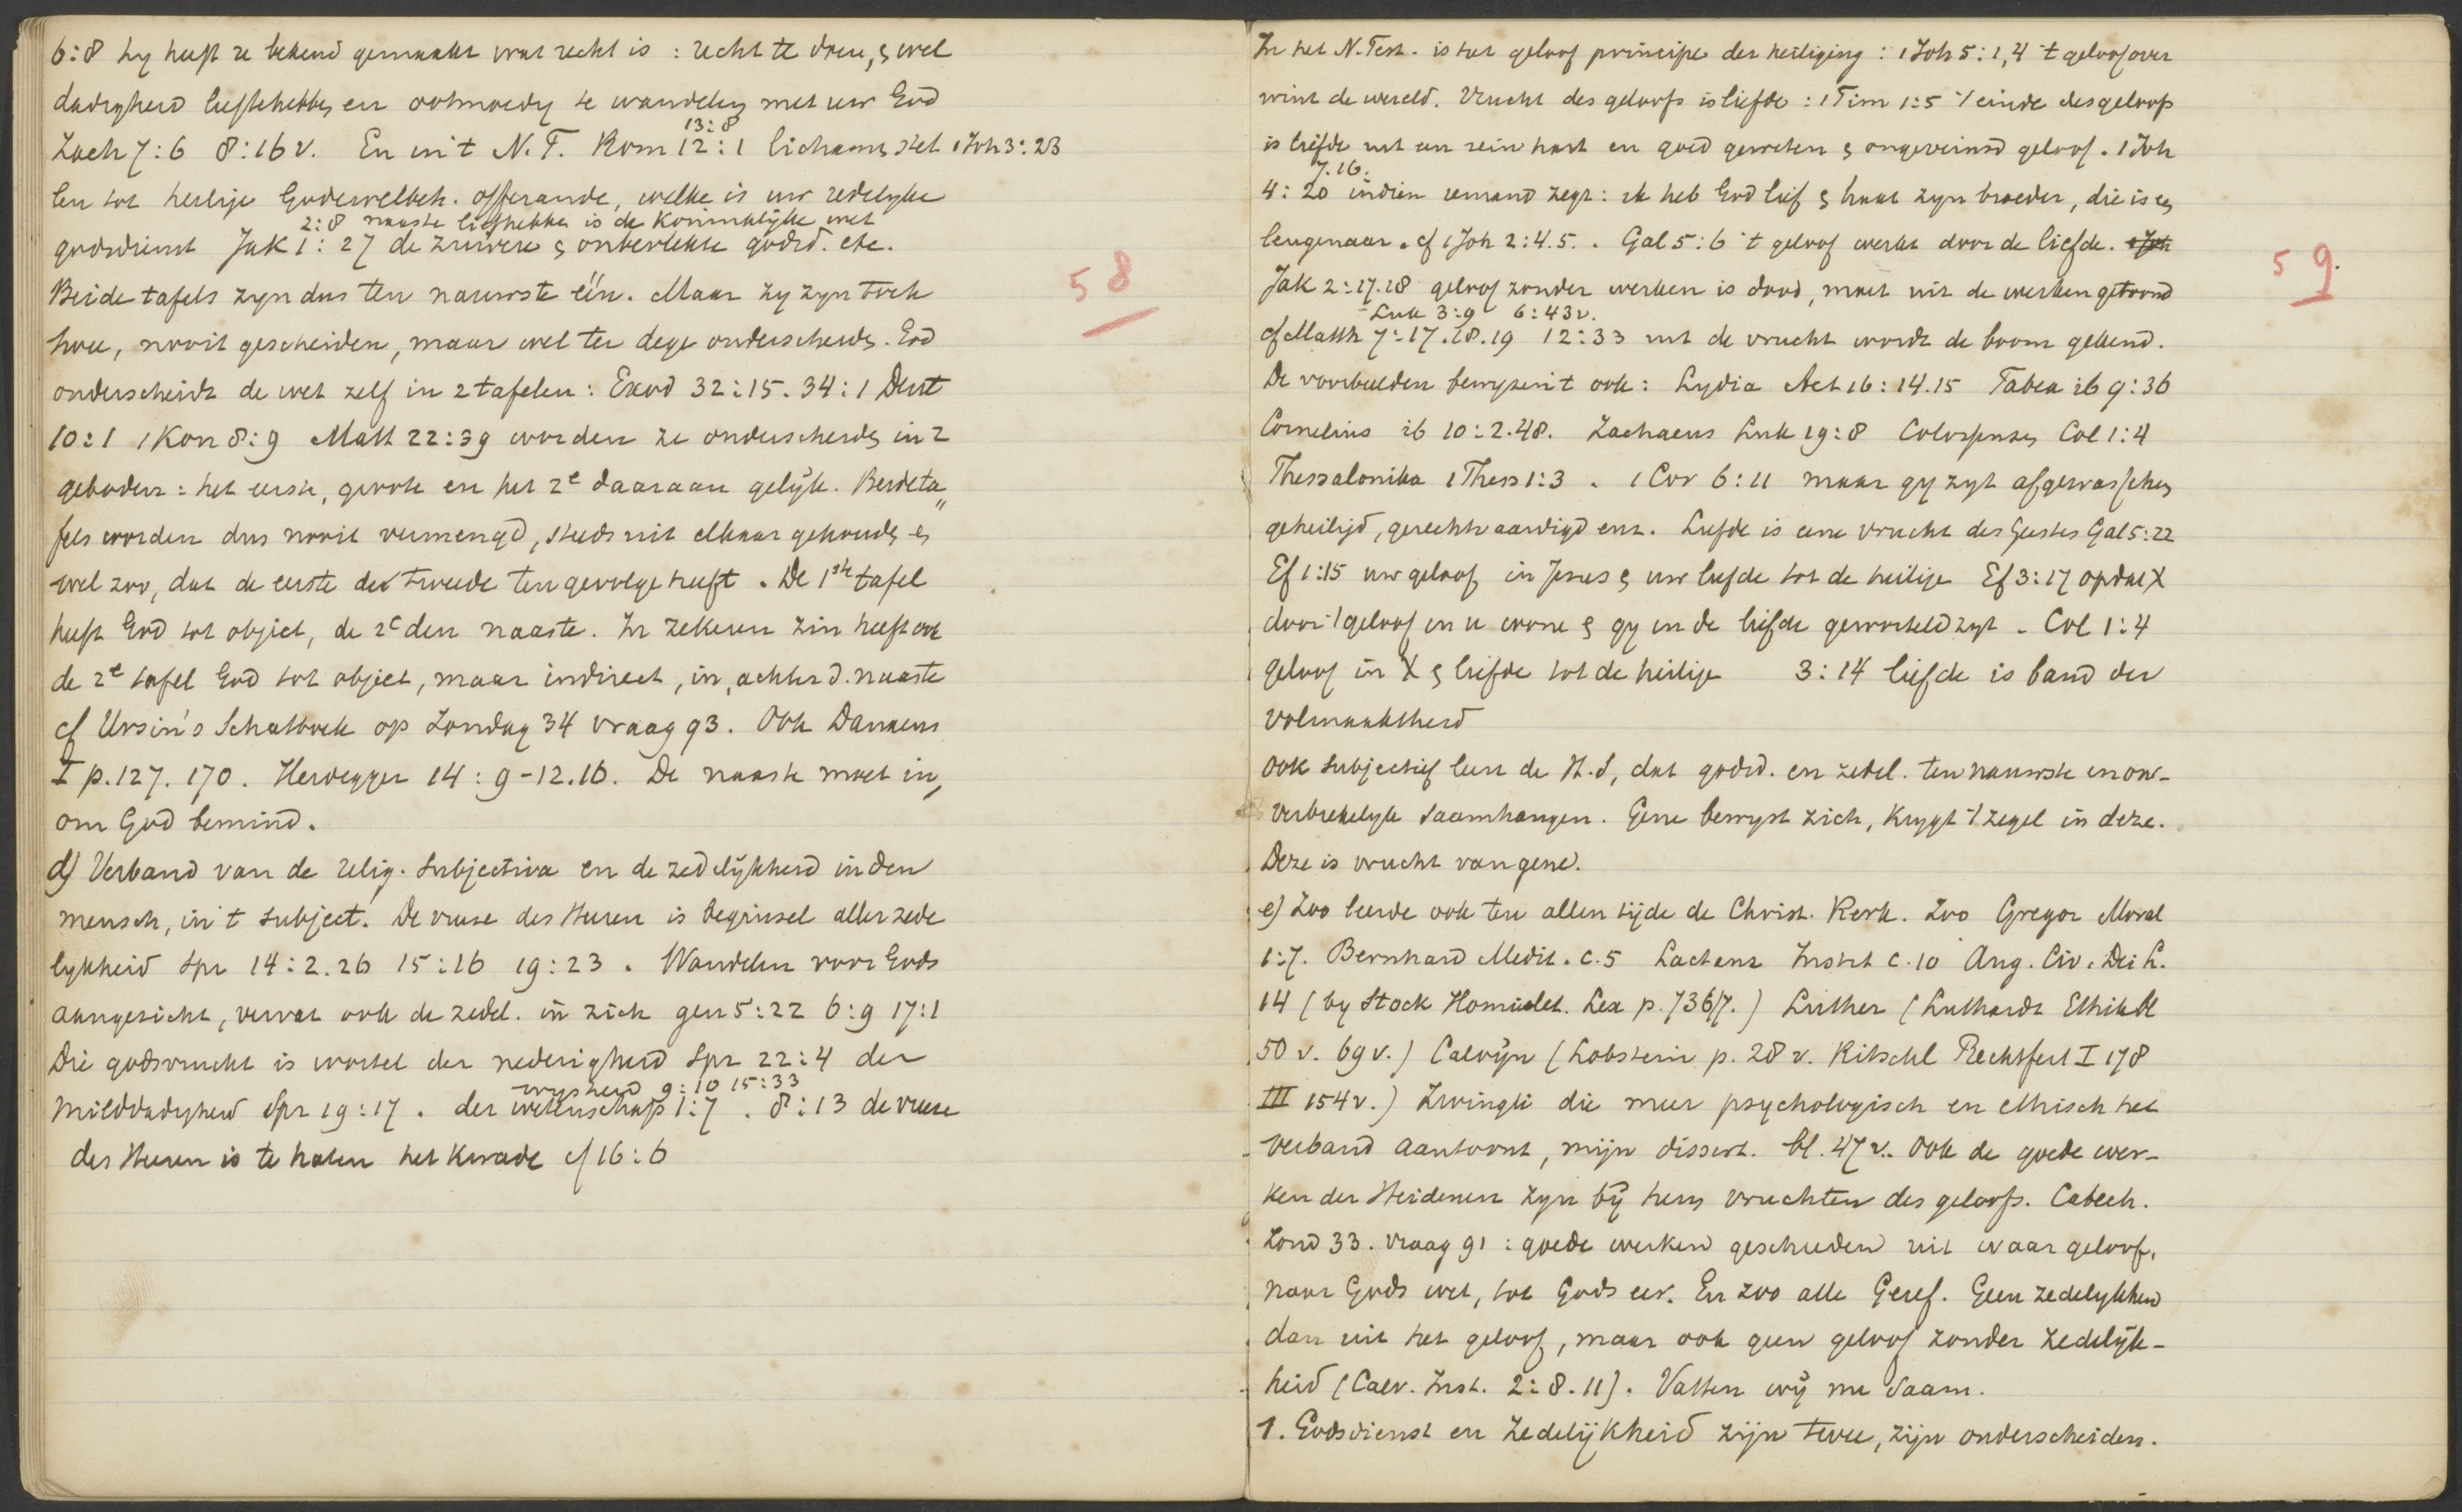 6:8 hy heeft u bekend gemaakt wat recht is : recht te doen, & wel
dadigheid liefhebben en ootmoedig te wandelen met uw God
13:8
Zach 7:6 8:16 v. En in 't N.T. Rom 12:1 lichamen stel 1 Joh 3:23
len tot heilige Godewelbeh. offerande, welke is uw redelyke
2:8 naaste liefhebben is de Koninklijke wet
godsdienst Jak 1:27 de zuivere & onbevlekte godsd. etc.
Beide tafels zyn dus ten nauwste één. Maar zy zyn toch
twee, nooit gescheiden, maar wel ter dege onderscheiden. God
onderscheidt de wet zelf in 2 tafelen : Exod 32:15. 34:1 Deut
10:1 1 Kon 8:9 Matt 22:39 worden ze onderscheiden in 2
geboden : het eerste, groote en het 2e daaraan gelijk. Beide ta„
fels worden dus nooit vermengd, steeds uit elkaar gehouden en
wel zoo, dat de eerste de tweede ten gevolge heeft. De 1ste tafel
heeft God tot object, de 2e den naaste. In zekeren zin heeft ook
de 2e tafel God tot object, maar indirect, in, achter d. naaste
cf Ursin's Schatboek op Zondag 34 vraag 93. Ook Danaeus
I p. 127. 170. Heidegger 14 : 9-12.16. De naaste moet in,
om God bemind.
d) Verband van de relig. subjectiva en de zedelijkheid in den
mensch, in 't subject. De vreese des Heeren is beginsel aller zede
lykheid Spr 14:2.26 15:16 19:23. Wandelen voor Gods
aangezicht, vervat ook de zedel. in zich gen 5:22 6:9 17:1
Die godsvrucht is wortel der nederigheid Spr 22:4 der
wysheid 9:10 15:33
milddadigheid Spr 19:17. der wetenschap 1:7. 8:13 de vreese
des Heeren is te haten het kwade cf 16:6
58
In het N. Test. is het geloof principe der heiliging : 1 Joh 5:1,4 't geloof over
wint de wereld. Vrucht des geloofs is liefde : 1 Tim 1:5 't einde des geloofs
is liefde uit een rein hart en goed geweten & ongeveinsd geloof. 1 Joh
7.16.
4:20 indien iemand zegt : ik heb God lief & haat zyn broeder, die is een
leugenaar. cf 1 Joh 2:4.5. . Gal 5:6 't geloof werkt door de liefde. 1 Joh
Jak 2:17.18 geloof zonder werken is dood, moet uit de werken getoond
Luk 3:9 6:43v.
cf Matth 7:17.18.19 12:33 uit de vrucht wordt de boom gekend.
De voorbeelden bewyzen 't ook : Lydia Act 16:14.15 Tabea ib 9:36
Cornelius ib 10:2.48. Zachaeus Luk 19:8 Colossensen Col 1:4
Thessalonika 1 Thess 1:3 . 1 Cor 6:11 maar gy zyt afgewasschen
geheiligd, gerechtvaardigd enz. Liefde is eene vrucht des Geestes Gal 5:22
Ef 1:15 uw geloof in Jesus & uw liefde tot de heilige Ef 3:17 opdat X
door 't geloof in u wone & gy in de liefde geworteld zyt. Col 1:4
geloof in X & liefde tot de heilige 3:14 liefde is band der
volmaaktheid
Ook subjectief leert de H.S, dat godsd. en zedel. ten nauwste en on-
verbrekelyk saamhangen. Gene bewyst zich, krygt 't zegel in deze.
Deze is vrucht van gene.
e) Zoo leerde ook ten allen tijde de Christ. Kerk. Zoo Gregor Moral
1:7. Bernhard Medit. c.5 Lactanz Instit c.10 Aug. Civ. Dei L.
14 (by Stock Homilet. Lex p. 736/7.) Luther (Luthardt Ethik
50 v. 69 v.) Calvijn (Lobstein p. 28 v. Ritschl Rechtfert I 178
III 154 v.) Zwingli die meer psychologisch en ethisch het
verband aantoont, mijn dissert. bl. 47 v. Ook de goede wer-
ken der Heidenen zyn bij hem vruchten des geloofs. Catech.
Zond 33. vraag 91 : goede werken geschieden uit waar geloof,
naar Gods wet, tot Gods eer. En zoo alle Geref. Geen zedelykheid
dan uit het geloof, maar ook geen geloof zonder zedelijk-
heid (Calv. Inst. 2:8.11). Vatten wij nu saam.
1. Godsdienst en zedelijkheid zijn twee, zijn onderscheiden.
59.